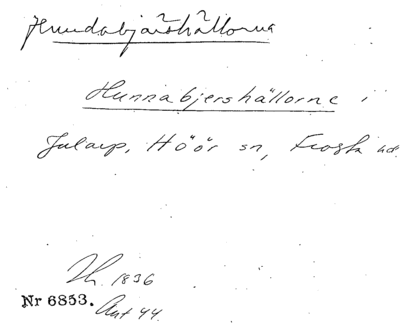 Hundabjärshällorna
Hunnabjershällorne i
Jularp, Höör sn, Frosta hd.
Th. 1836
Nr 6853. Ant 44.